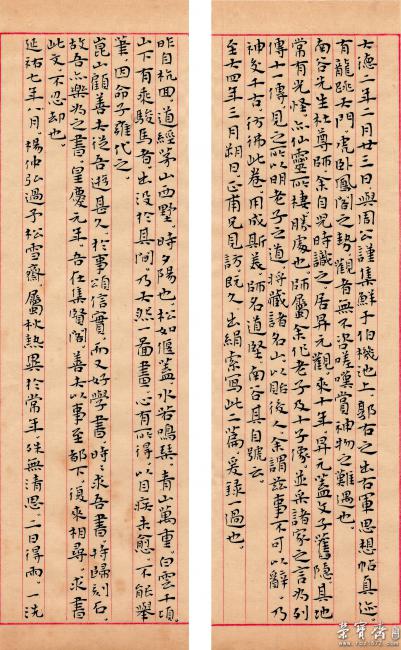 大德二年二月廿三日與周公謹集鮮于伯機池上,郭右之出右軍思想帖真迹.
有龍跳天門,虎卧鳳閣之勢,觀者無不咨嗟嘆賞神物之難遇也.
南谷先生杜尊師余自兒時識之居昇元觀,來十年,昇元蓋文子舊隱其地
常有光怪,亦仙靈所棲勝處也.師屬余作老子及十子像,並采諸家之言為列
傳十一傳,見之所以明老子之道,將藏諸名山以貽後人,余謂茲事不可以辭,乃
神交千古,彷彿此卷用成斯美,師名道堅南谷其自號云.
至大四年三月朔日,正甫兄見訪,既久出絹索寫此二篇,爰錄一過也.
昨自杭回道經茅山西墅,時夕陽也.松如偃蓋水若鳴琴,青山萬重,白雲千頃,
山下有乘駿馬者出沒於其間,乃天然一圖畫,心有所得,以目疾未愈,不能舉
筆,因命子雍代之.
崑山顧善夫從吾游甚久,於事頗信實,而又好學書,時:求吾書,將歸刻石,
故吾亦樂為之書,皇慶元年,吾在集賢閣,善夫以事至都下,復來相尋,求書
此文不忍却也.
延祐七年八月,楊仲弘過予松雪齋,屬秋熱異於常年,殊無清思,一日得雨,一洗
榮寶齋